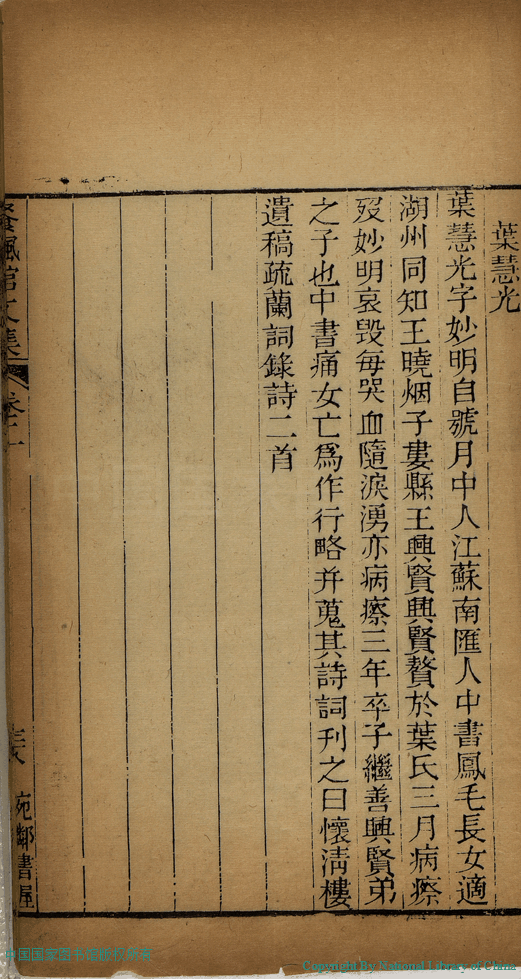 葉慧光
葉慧光字妙明自號月中人江蘇南匯人中書鳳毛長女適
湖州同知王曉烟子婁縣王興賢興賢贅於葉氏三月病瘵
歿妙明哀毀每哭血隨淚湧亦病瘵三年卒子繼善興賢弟
之子也中書痛女亡爲作行略并蒐其詩詞刊之曰懷淸樓
遺稿疏蘭詞錄詩二首
餐楓館文集 卷二
宛鄰書屋
中国国家图书馆版权所有
Copyright By National Library of China